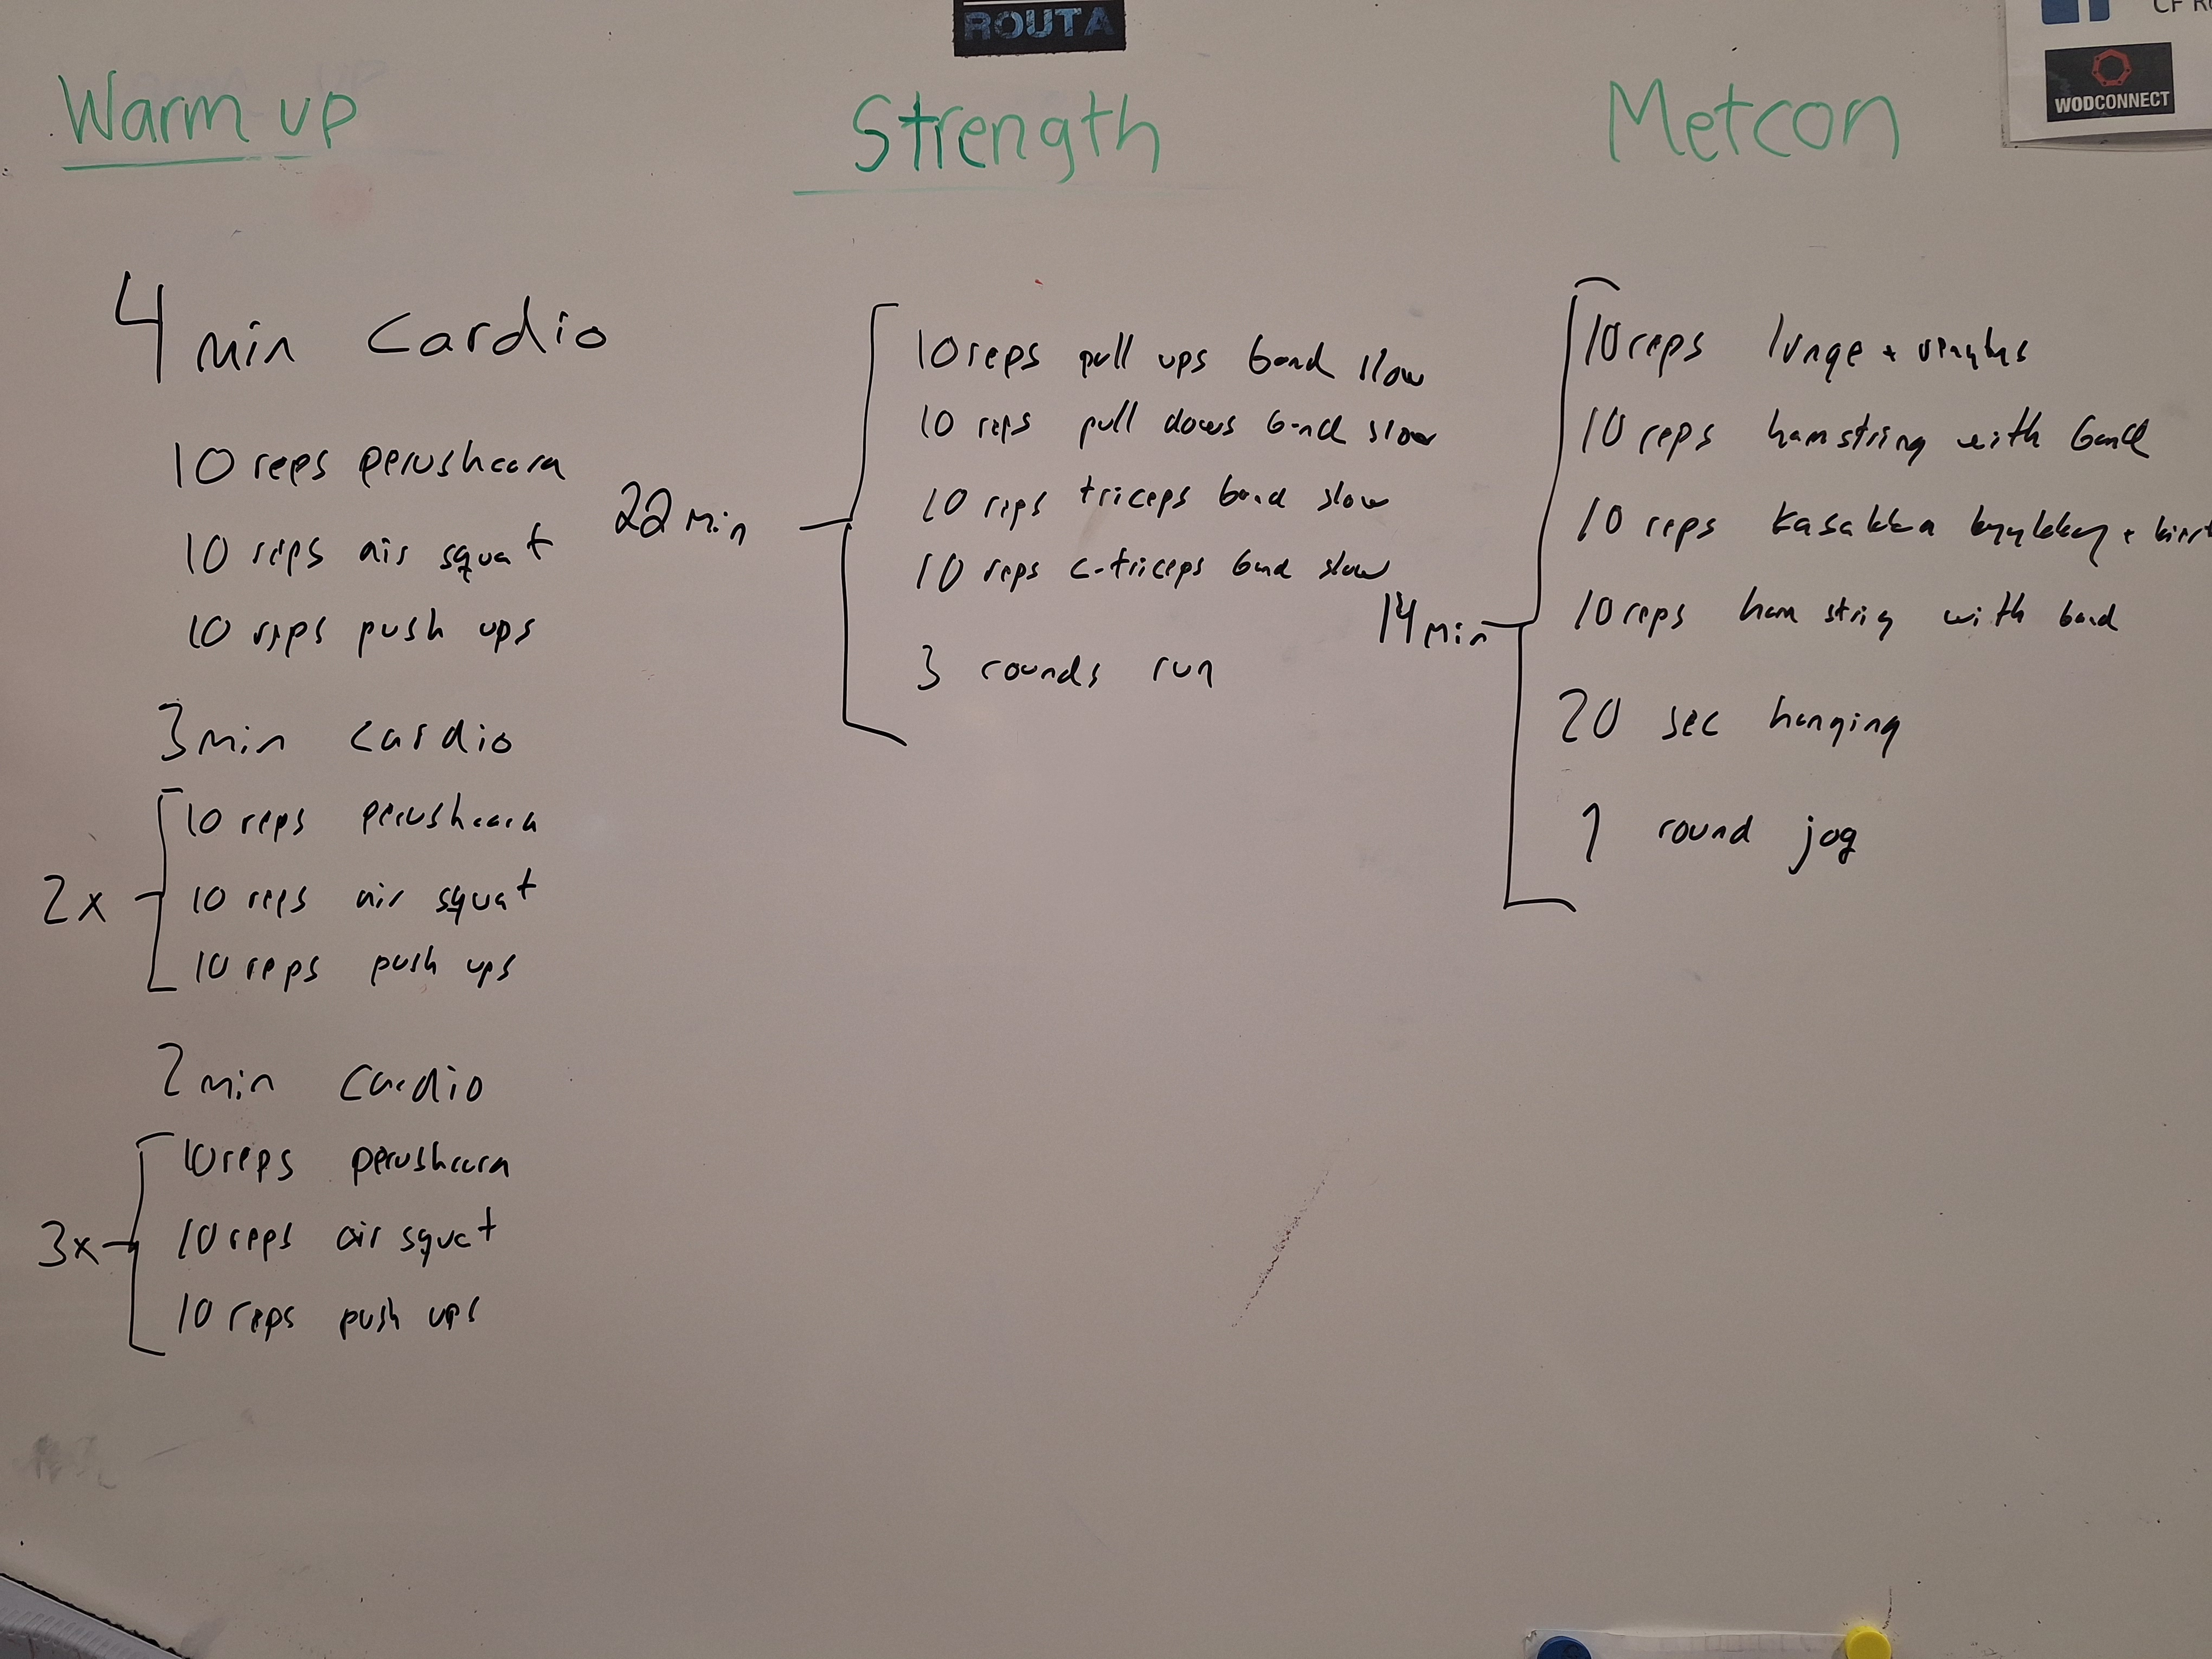 ROUTA
WODCONNECT
Warm up
4 min cardio
10 reps perushaara
10 reps air squat
10 reps push ups
3 min cardio
2x
10 reps perushaara
10 reps air squat
10 reps push ups
2 min cardio
3x
10 reps perushaara
10 reps air squat
10 reps push ups
Strength
22 min
10 reps pull ups band slow
10 reps pull downs band slow
10 reps triceps band slow
10 reps c-triceps band slow
3 rounds run
Metcon
14 min
10 reps lunge + venytys
10 reps hamstring with band
10 reps kasakka kyykky +
10 reps ham string with band
20 sec hanging
1 round jog